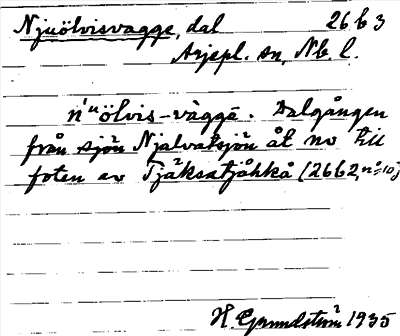 Njuölvisvagge, dal 26 b 3
Arjepl. sn, Nb. l.
n'uölvis-vàggē. Dalgången
från sjön Njalvatsjön åt no till
foten av Tjäksatjåhkå (26b2, nr 10)
H. Grundström 1935